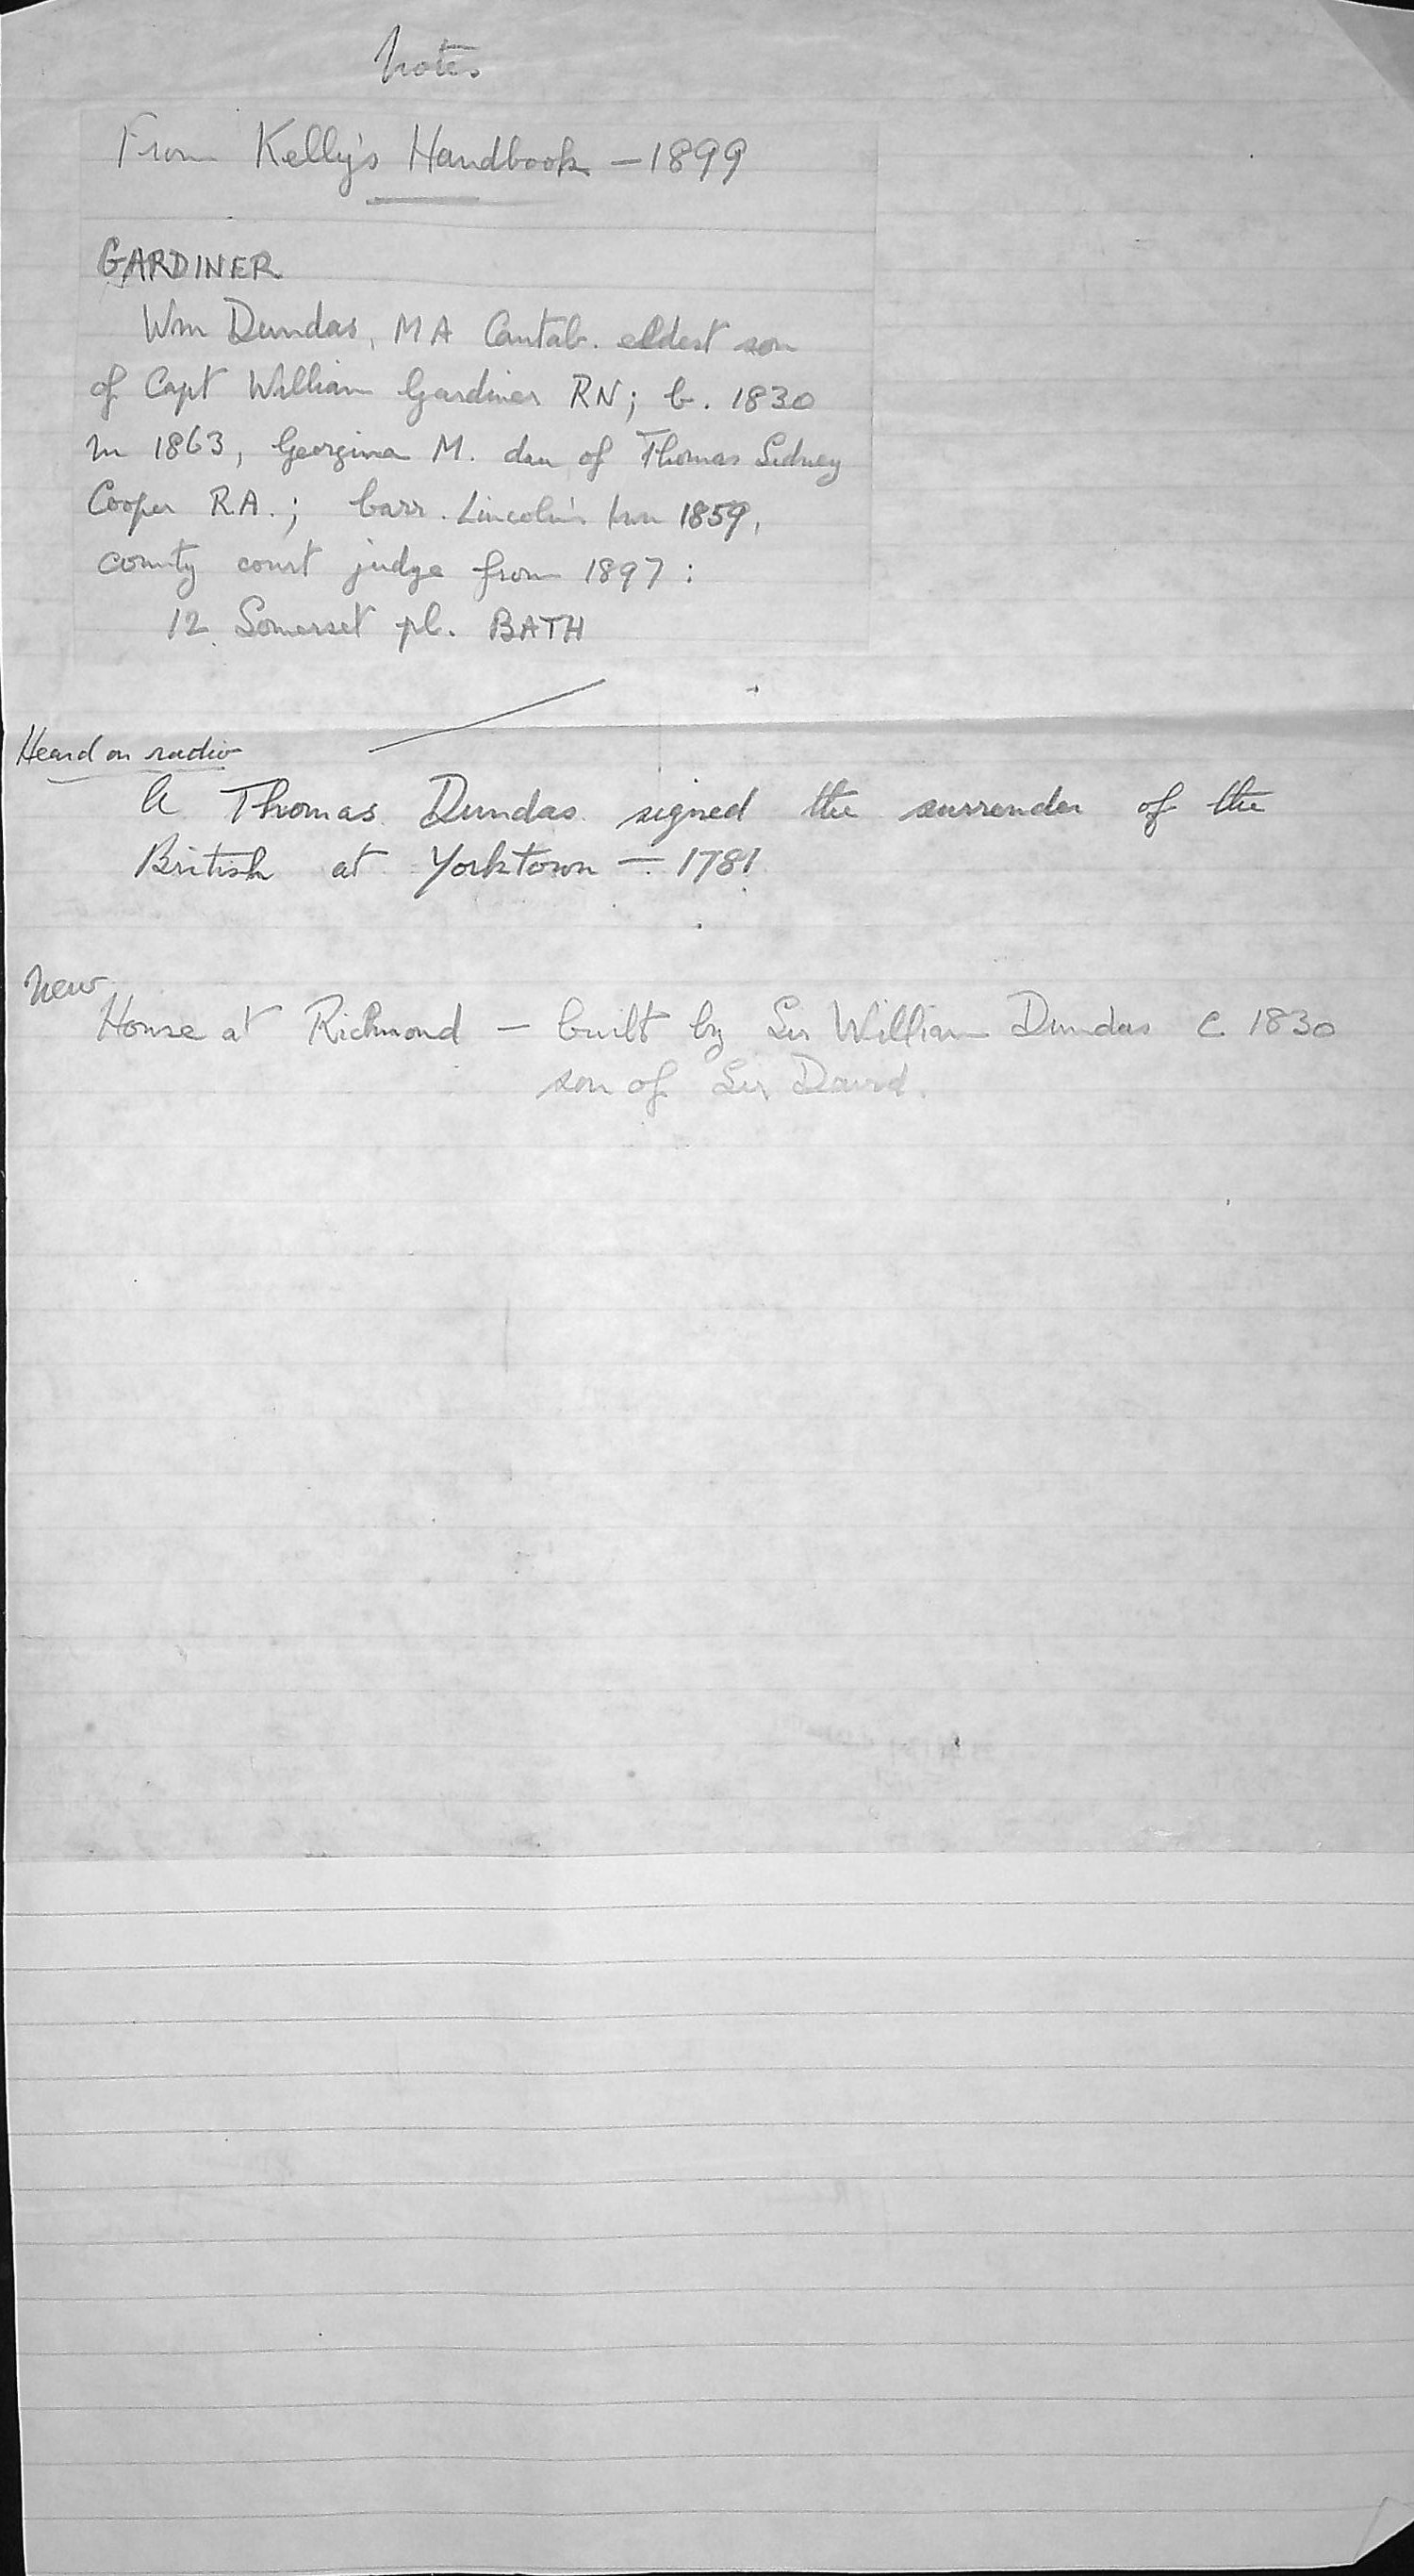 Notes
From Kelly's Handbook – 1899
GARDINER
Wm Dundas, MA Cantab. eldest son
of Capt William Gardiner RN; b. 1830
m 1863, Georgina M. dau of Thomas Sidney
Cooper R.A.; barr. Lincoln's Inn 1859,
county court judge from 1897:
12 Somerset pl. BATH
Heard on radio
A Thomas Dundas signed the surrender of the
British at Yorktown – 1781
New
House at Richmond – built by Sir William Dundas c 1830
son of Sir David.